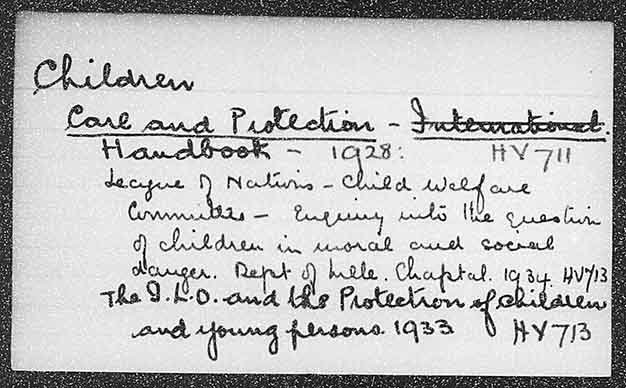 Children
Care and Protection - International.
Handbook - 1928: HV 711
League of Nations - Child Welfare
Committee - Enquiry into the question
of children in moral and social
danger. Rept of Mlle. Chaptal. 1934. HV713
The I.L.O. and the Protection of children
and young persons. 1933 HV713